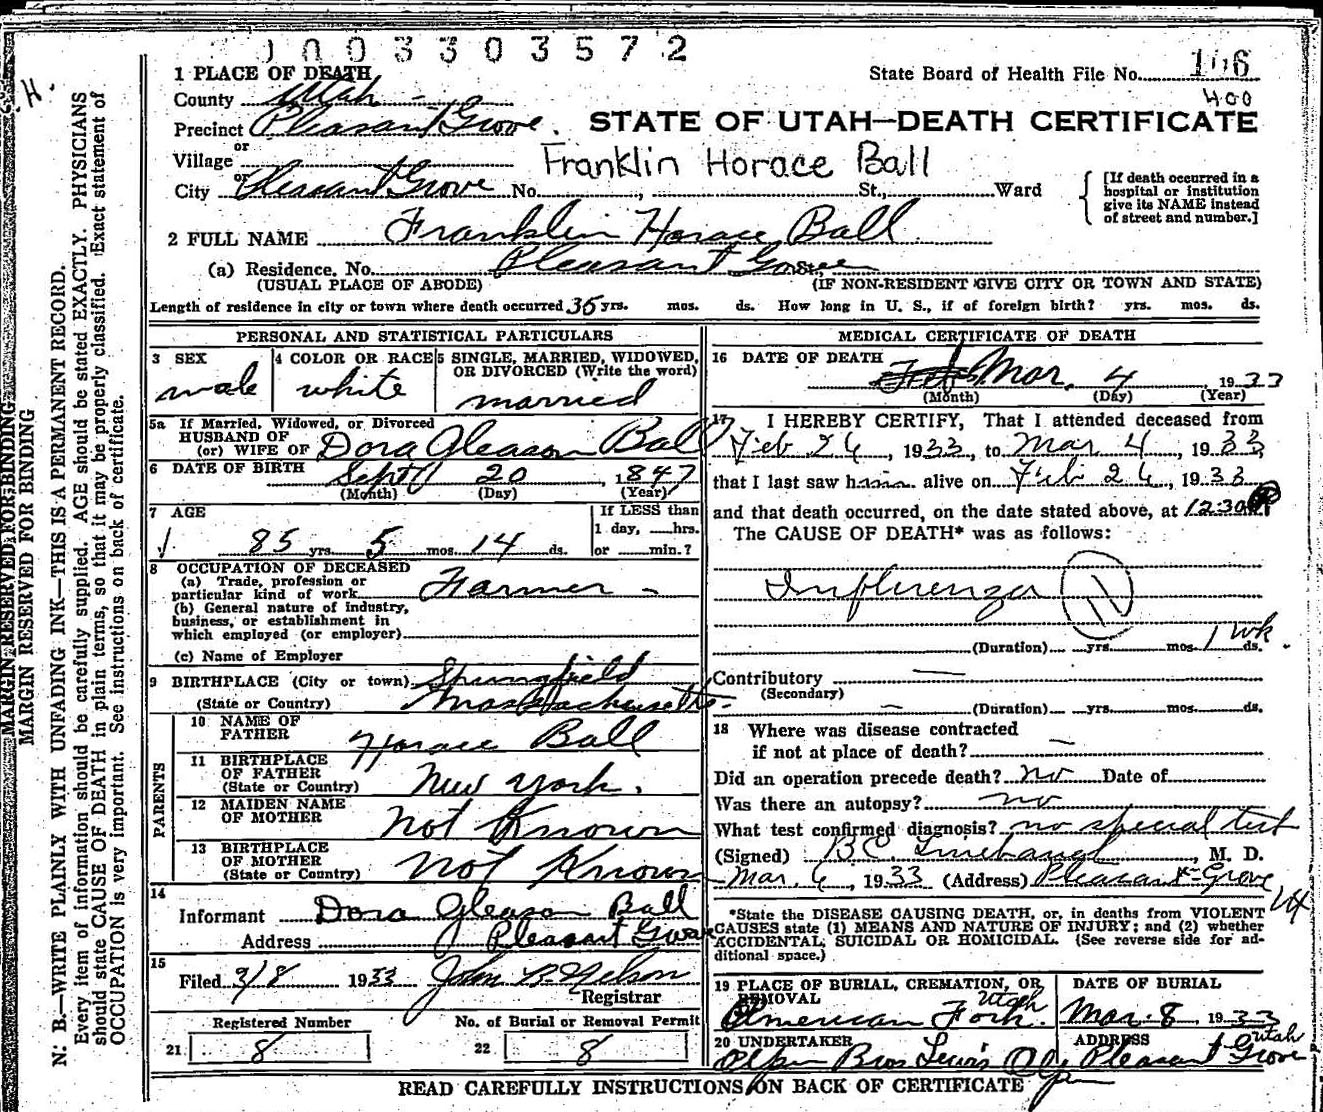 0003303572
1 PLACE OF DEATH
State Board of Health File No. 106
400
County Utah
Precinct Pleasant Grove.
STATE OF UTAH—DEATH CERTIFICATE
or
Village
Franklin Horace Ball
or
City Pleasant Grove No. , St., Ward
[If death occurred in a
hospital or institution
give its NAME instead
of street and number.]
2 FULL NAME Franklin Horace Ball
(a) Residence. No. Pleasant Grove St.,
(USUAL PLACE OF ABODE) (IF NON-RESIDENT GIVE CITY OR TOWN AND STATE)
Length of residence in city or town where death occurred 35 yrs. mos. ds. How long in U. S., if of foreign birth? yrs. mos. ds.
PERSONAL AND STATISTICAL PARTICULARS
3 SEX
male
4 COLOR OR RACE
white
5 SINGLE, MARRIED, WIDOWED,
OR DIVORCED (Write the word)
married
5a If Married, Widowed, or Divorced
HUSBAND OF
(or) WIFE OF Dora Gleason Ball
6 DATE OF BIRTH Sept 20, 1847
(Month) (Day) (Year)
7 AGE
85 yrs. 5 mos. 14 ds.
If LESS than
1 day, hrs.
or min.?
8 OCCUPATION OF DECEASED
(a) Trade, profession or
particular kind of work Farmer
(b) General nature of industry,
business, or establishment in
which employed (or employer)
(c) Name of Employer
9 BIRTHPLACE (City or town) Springfield
(State or Country) Massachusetts
PARENTS
10 NAME OF
FATHER Horace Ball
11 BIRTHPLACE
OF FATHER
(State or Country) New York.
12 MAIDEN NAME
OF MOTHER Not Known
13 BIRTHPLACE
OF MOTHER
(State or Country) Not Known
14
Informant Dora Gleason Ball
Address Pleasant Grove
15
Filed 3/8 1933 John B. Nelson
Registrar
Registered Number
21 8
No. of Burial or Removal Permit
22 8
MEDICAL CERTIFICATE OF DEATH
16 DATE OF DEATH
Mar. 4, 1933
(Month) (Day) (Year)
17 I HEREBY CERTIFY, That I attended deceased from
Feb 26, 1933, to Mar 4, 1933
that I last saw him alive on Feb 26, 1933
and that death occurred, on the date stated above, at 12:30 P
The CAUSE OF DEATH* was as follows:
Influenza 11
(Duration) yrs. mos. 1 wk ds.
Contributory —
(Secondary)
— (Duration) yrs. mos. ds.
18 Where was disease contracted
if not at place of death? —
Did an operation precede death? no Date of
Was there an autopsy? no
What test confirmed diagnosis? no special test
(Signed) B.C. , M. D.
Mar. 6, 1933 (Address) Pleasant Grove
Ut
*State the DISEASE CAUSING DEATH, or, in deaths from VIOLENT
CAUSES state (1) MEANS AND NATURE OF INJURY; and (2) whether
ACCIDENTAL, SUICIDAL OR HOMICIDAL. (See reverse side for ad-
ditional space.)
19 PLACE OF BURIAL, CREMATION, OR
REMOVAL
American Fork. Utah
DATE OF BURIAL
Mar. 8, 1933
20 UNDERTAKER
Olpin Bros Lewis Olpin
ADDRESS
Pleasant Grove Utah
READ CAREFULLY INSTRUCTIONS ON BACK OF CERTIFICATE
H.
MARGIN RESERVED FOR BINDING
MARGIN RESERVED FOR BINDING
N: B.—WRITE PLAINLY WITH UNFADING INK—THIS IS A PERMANENT RECORD.
Every item of information should be carefully supplied. AGE should be stated EXACTLY. PHYSICIANS
should state CAUSE OF DEATH in plain terms, so that it may be properly classified. Exact statement of
OCCUPATION is very important. See instructions on back of certificate.